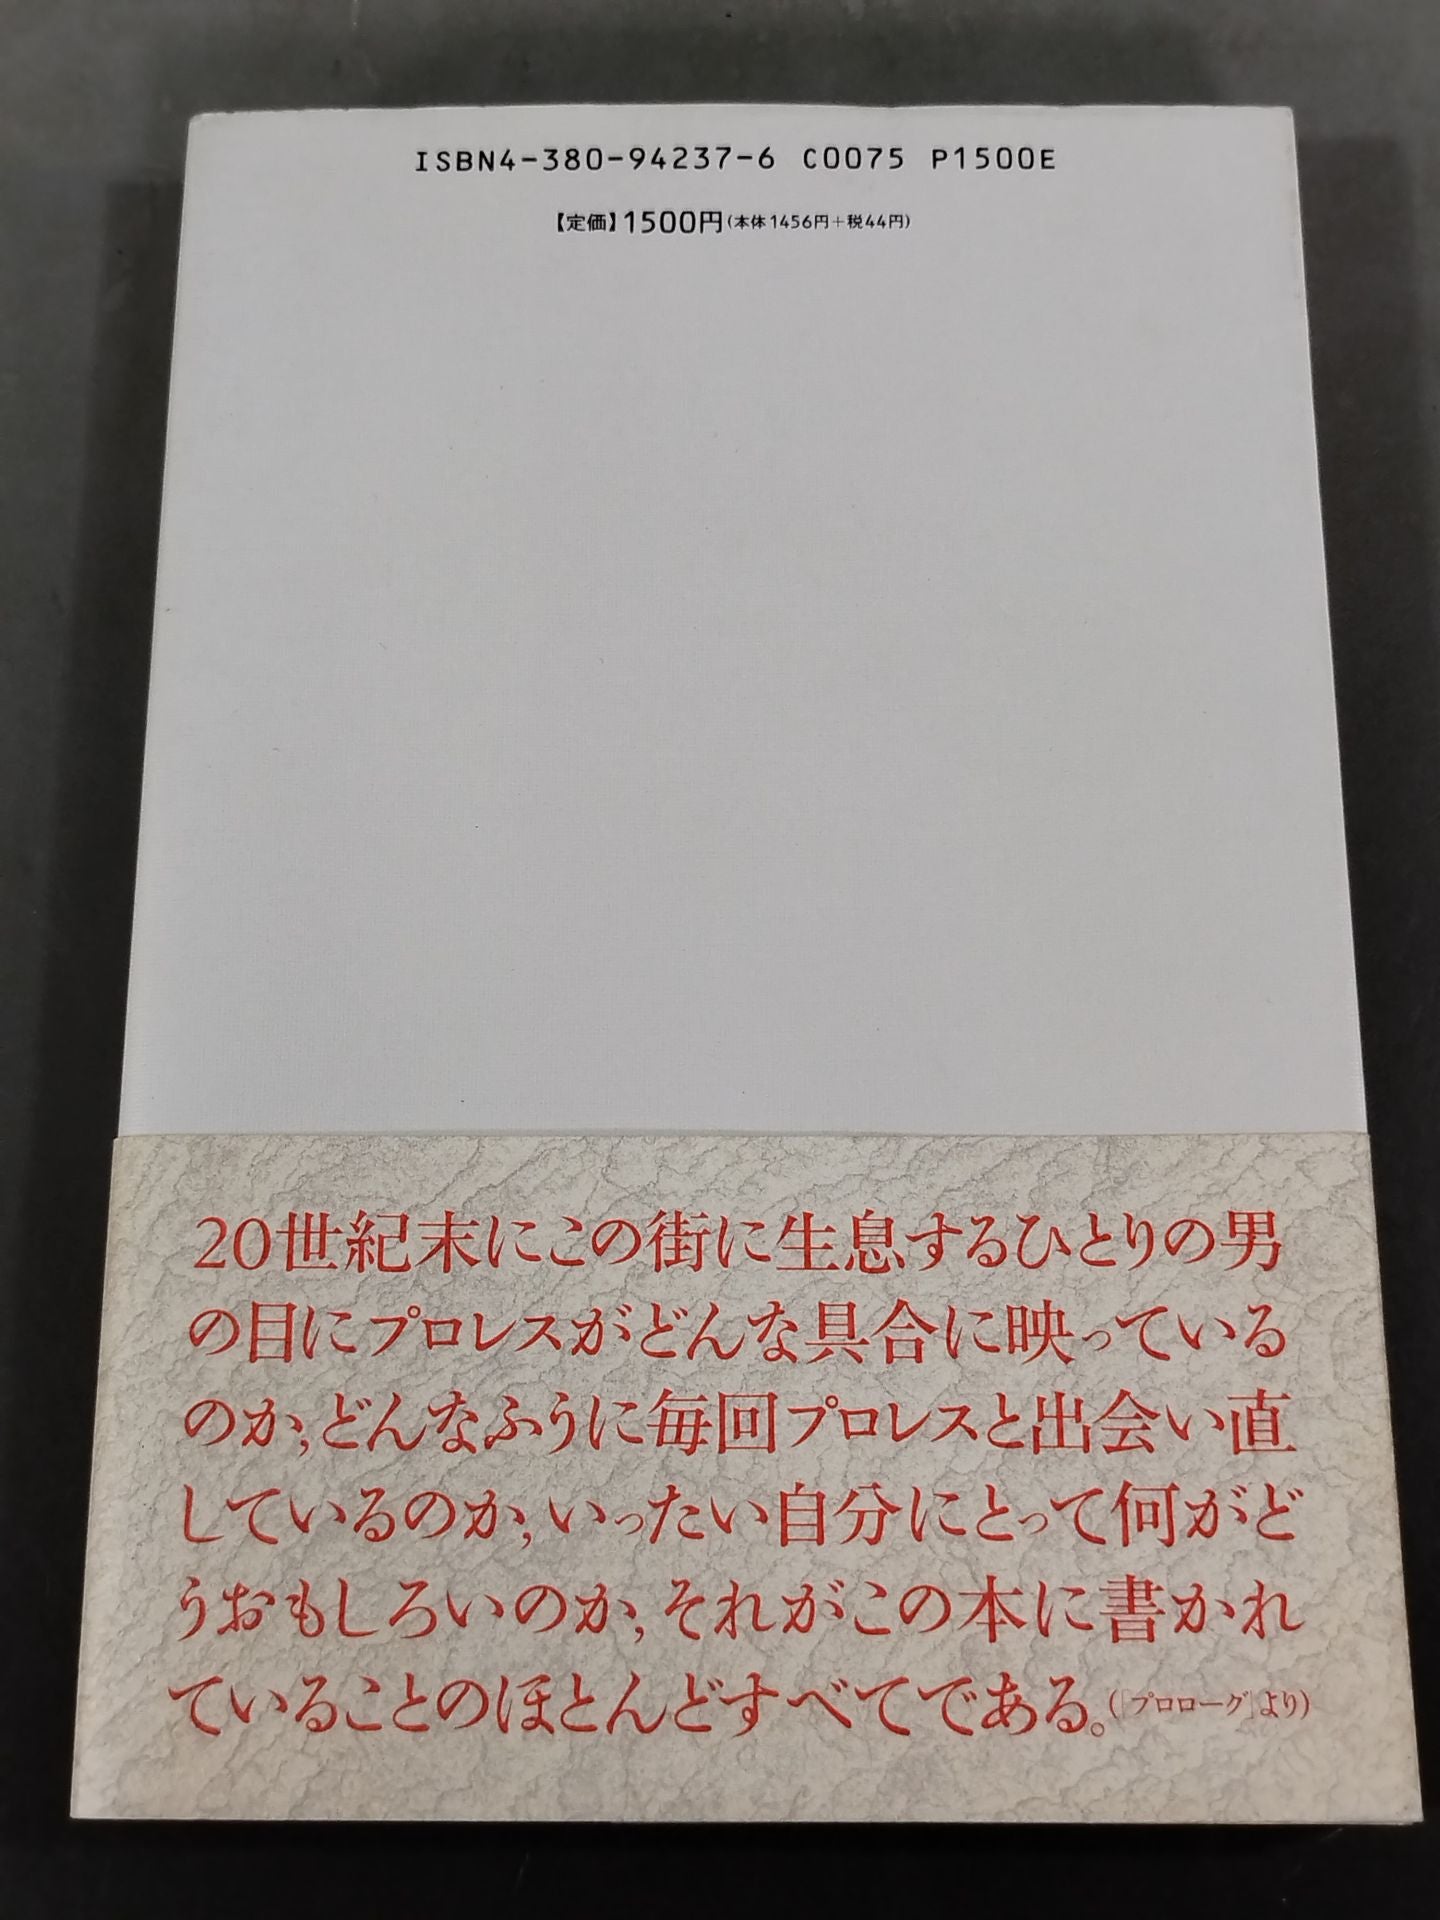 ISBN4-380-94237-6 C0075 P1500E
【定価】1500円(本体1456円+税44円)
20世紀末にこの街に生息するひとりの男
の目にプロレスがどんな具合に映っている
のか,どんなふうに毎回プロレスと出会い直
しているのか,いったい自分にとって何がど
うおもしろいのか,それがこの本に書かれ
ていることのほとんどすべてである。(「プロローグ」より)